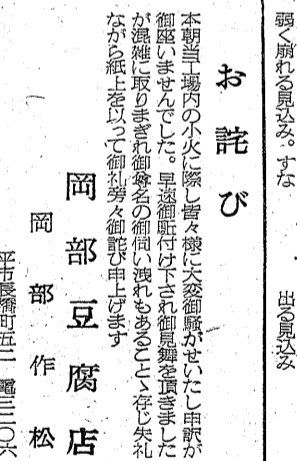 弱く崩れる見込み。すな
出る見込み
お詫び
本朝当工場内の小火に際し皆々様に大変御騒がせいたし申訳が
御座いませんでした。早速御駈付け下され御見舞を頂きました
が混雑に取りまぎれ御尊名の御伺い洩れもあることゝ存じ失礼
ながら紙上を以って御礼旁々御詫び申上げます
岡部豆腐店
岡部作松
平市長橋町五二 電三二〇六